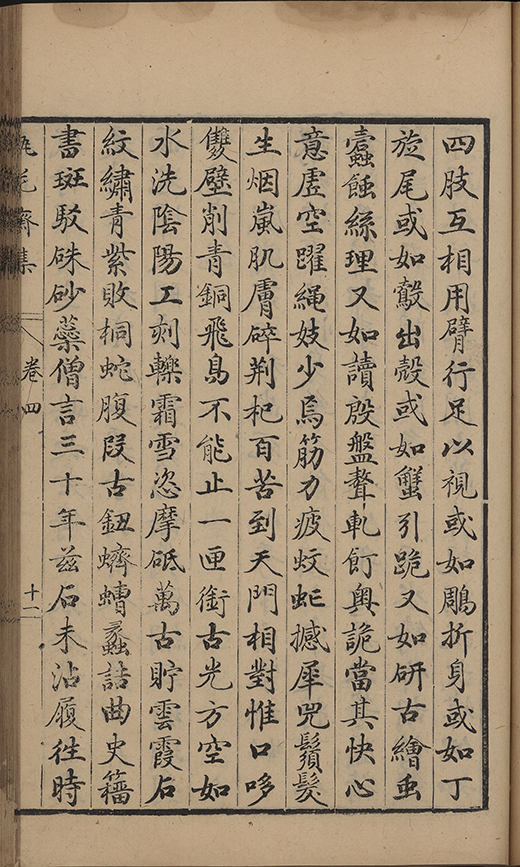 四肢互相用臂行足以視或如鵰折身或如丁
旋尾或如鷇出殼或如蟹引跪又如硏古繪虫
蠧蝕絲理又如讀殷盤聱軋飣奧詭當其快心
意虛空躍繩妓少焉筋力疲蚊虻撼犀兕鬚髮
生烟嵐肌膚碎荆杞百苦到天門相對惟口哆
雙壁削青銅飛鳥不能止一匣銜古光方空如
水洗陰陽工刻轢霜雪恣摩砥萬古貯雲霞石
紋繡青紫敗桐蛇腹叚古鈕蠐螬蠡詰曲史籀
書斑駁硃砂蘂僧言三十年茲石未沾履徃時
齊集
卷四
十二